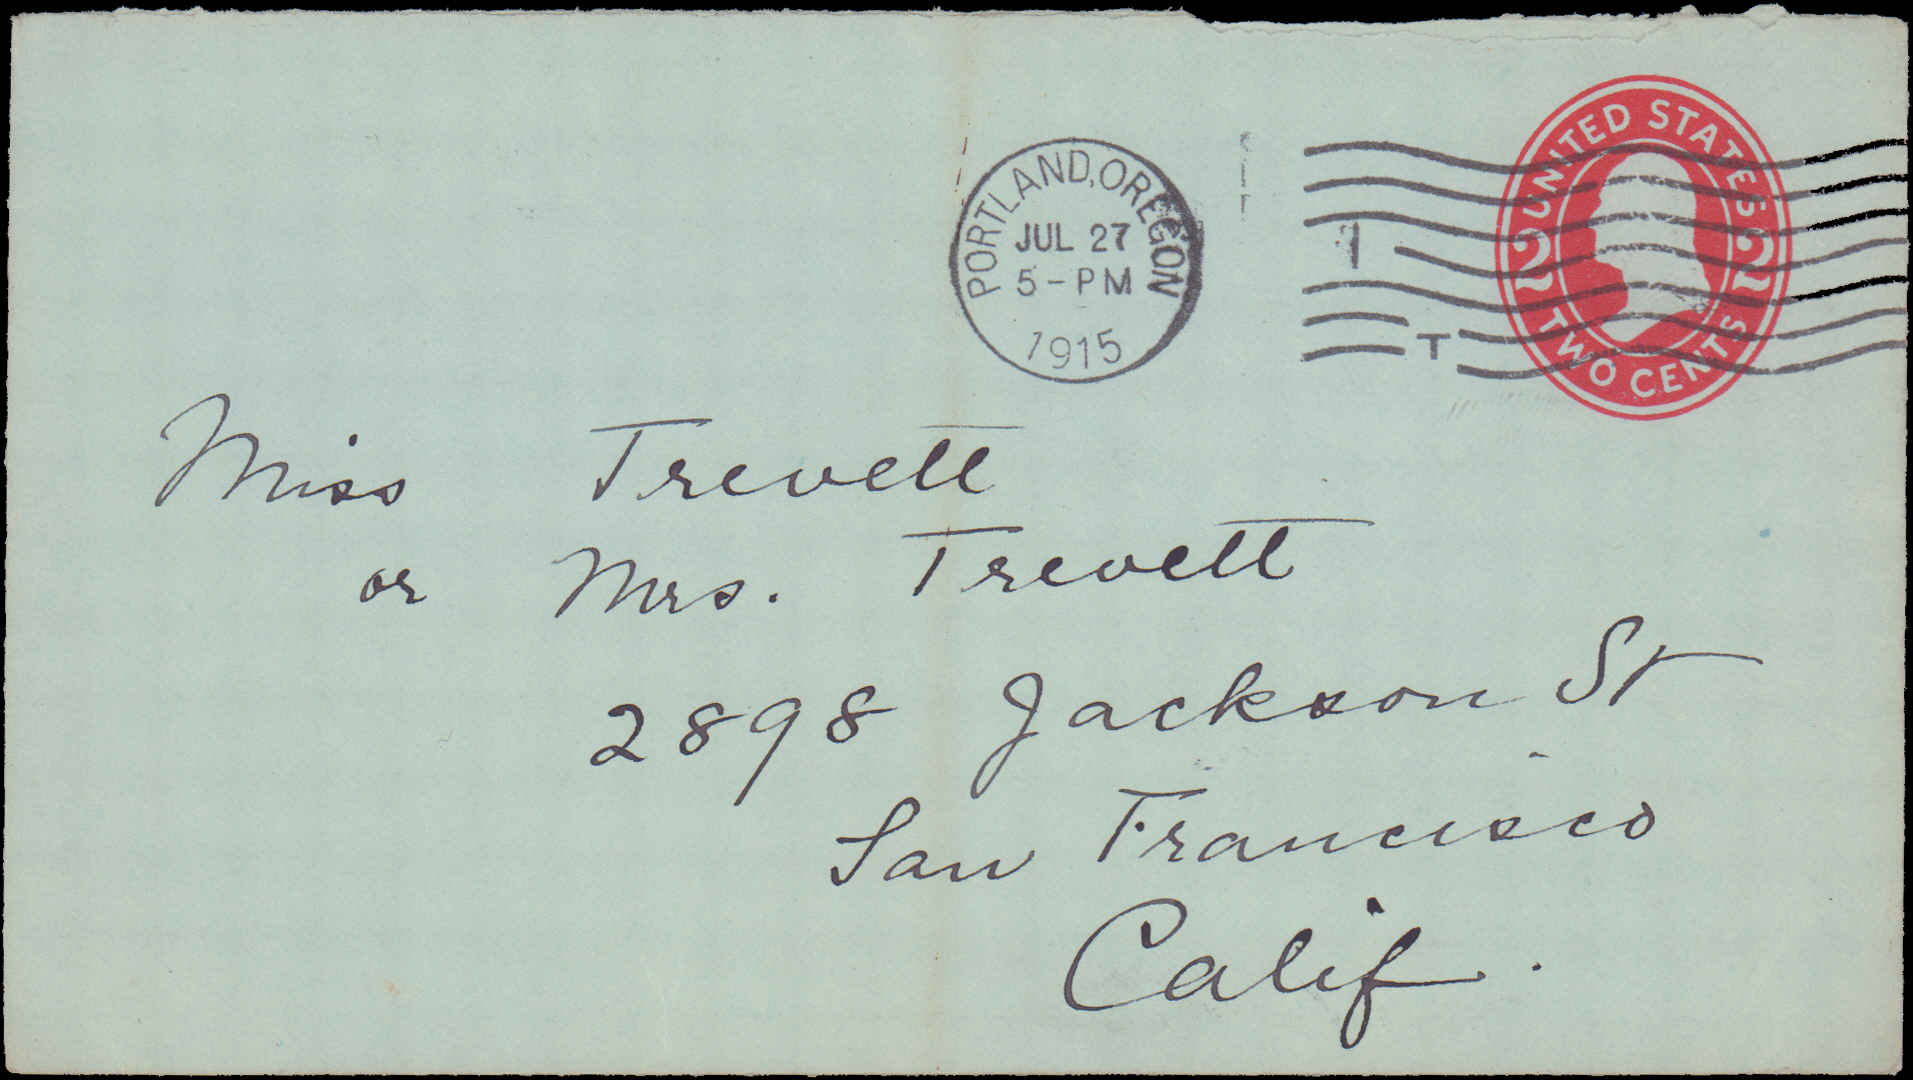 PORTLAND, OREGON
JUL 27
5-PM
1915
UNITED STATES
2 2
TWO CENTS
1
T
Miss Trevett
or Mrs. Trevett
2898 Jackson St
San Francisco
Calif.